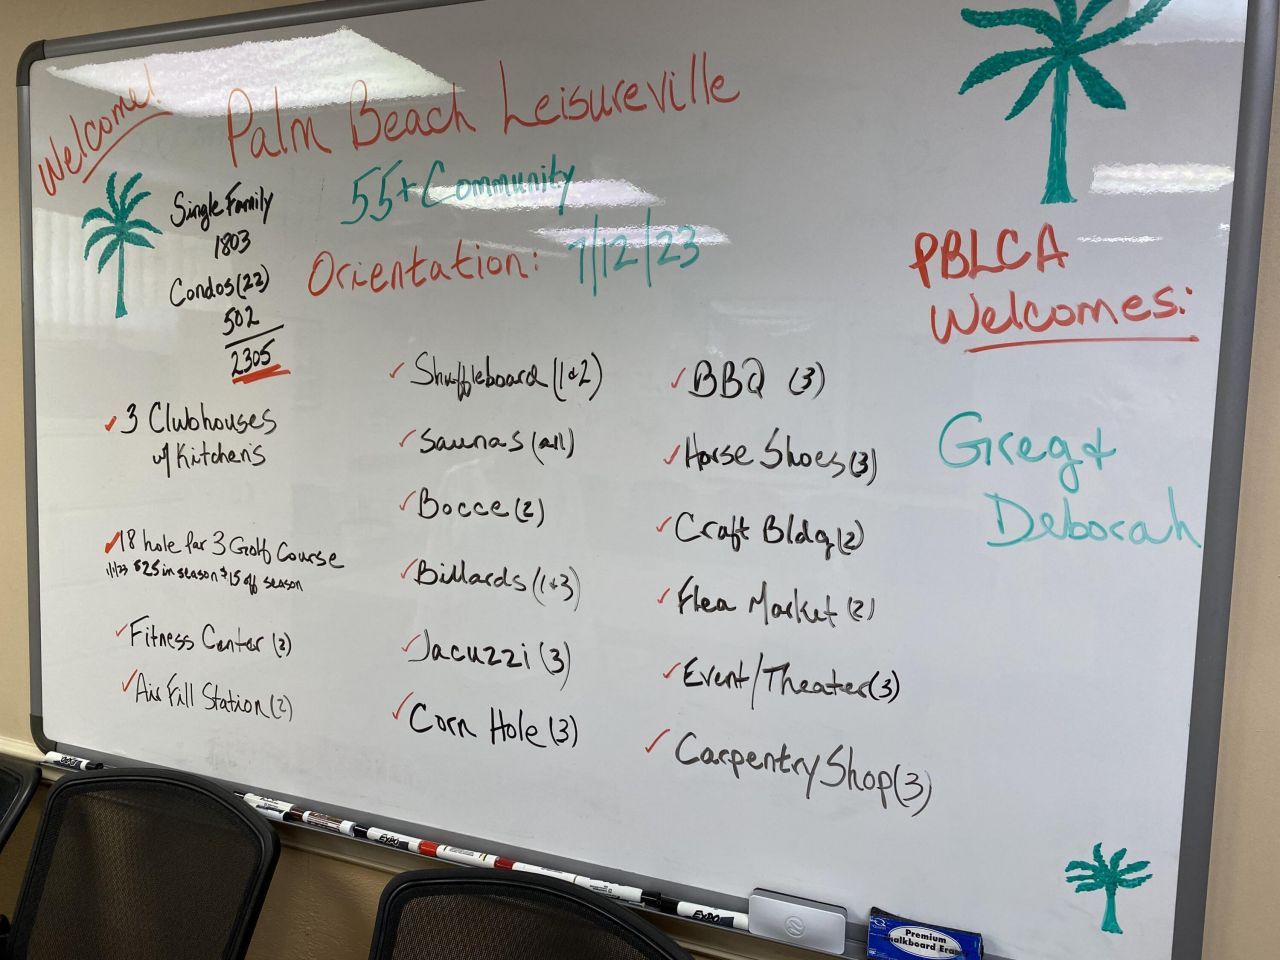 Welcome!
Palm Beach Leisureville
55+ Community
Orientation: 7/12/23
Single Family
1803
Condos (22)
502
2305
✓ 3 Clubhouses
w/ Kitchens
✓ 18 hole par 3 Golf Course
1/1/23 $25 in season $15 off season
✓ Fitness Center (2)
✓ Air Fill Station (2)
✓ Shuffleboard (1&2)
✓ Saunas (all)
✓ Bocce (2)
✓ Billards (1&3)
✓ Jacuzzi (3)
✓ Corn Hole (3)
✓ BBQ (3)
✓ Horse Shoes (3)
✓ Craft Bldg (2)
✓ Flea Market (2)
✓ Event/Theater (3)
✓ Carpentry Shop (3)
PBLCA
Welcomes:
Greg &
Deborah
EXPO
EXPO
Premium
Chalkboard Eraser